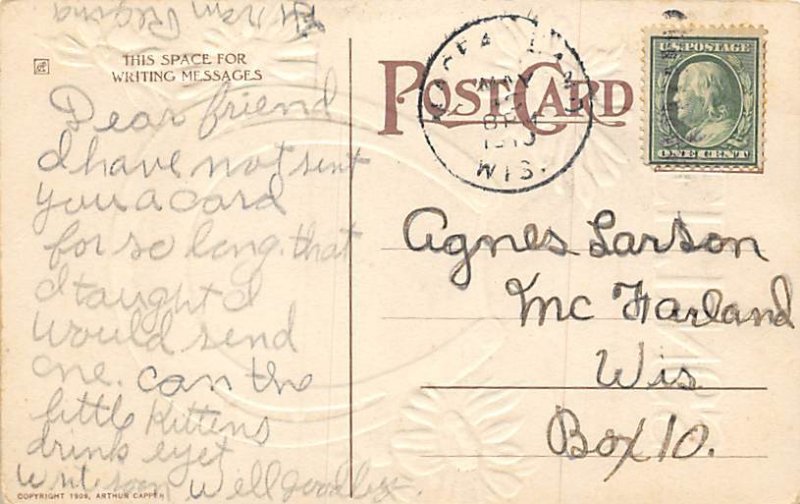 From Regina
THIS SPACE FOR
WRITING MESSAGES
Dear friend
I have not sent
you a card
for so long. that
I taught I
would send
one. can the
little Kittens
drink eyet
Write soon Well goodbye.
COPYRIGHT 1909, ARTHUR CAPPER
POST CARD
MAY
WIS.
U.S. POSTAGE
ONE CENT
Agnes Larson
Mc Farland
Wis
Box 10.